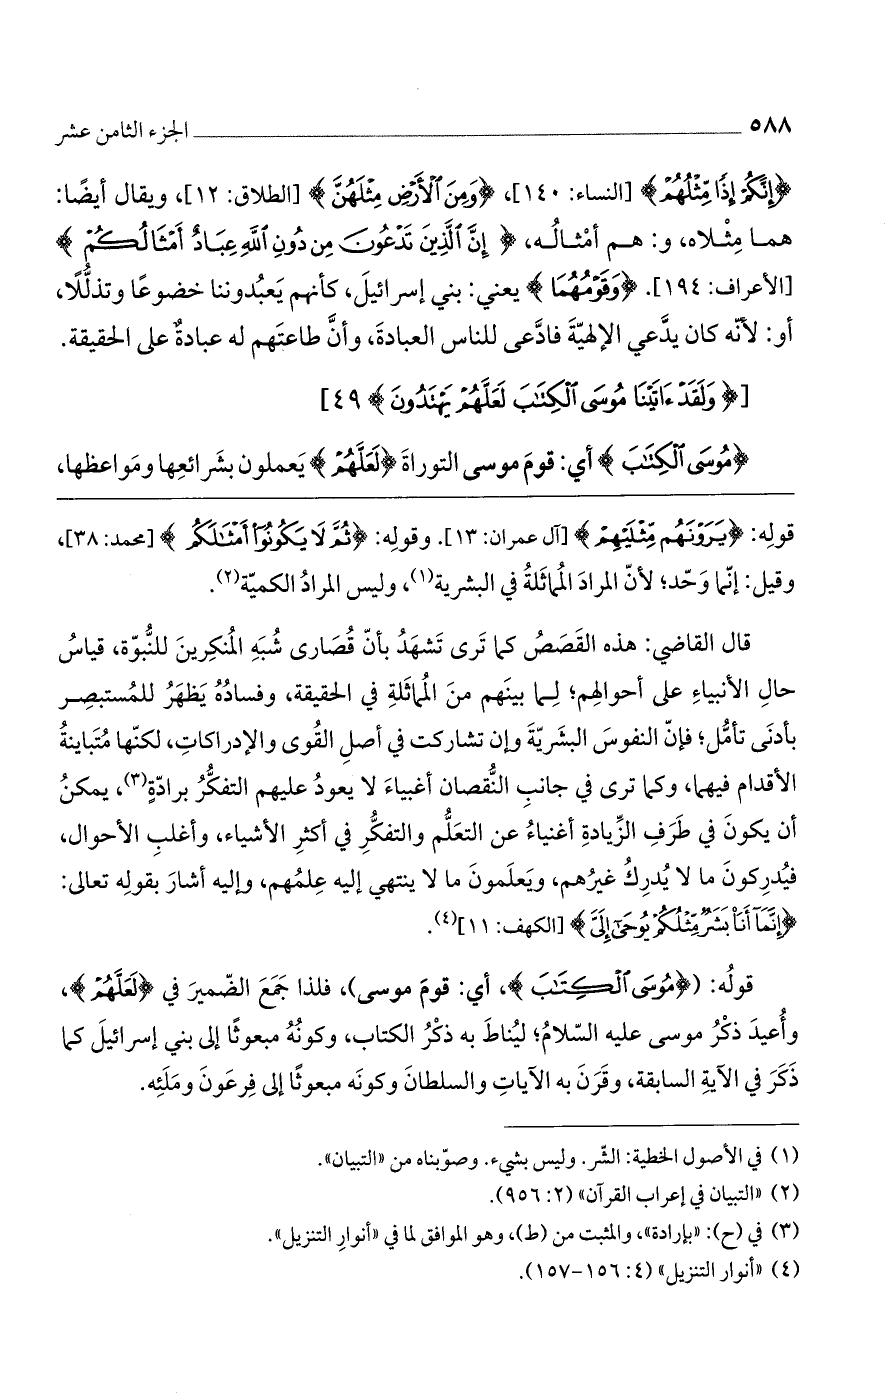 ٥٨٨ الجزء الثامن عشر
﴿إِنَّكُمْ إِذًا مِّثْلُهُمْ﴾ [النساء: ١٤٠]، ﴿وَمِنَ ٱلْأَرْضِ مِثْلَهُنَّ﴾ [الطلاق: ١٢]، ويقال أيضًا:
هما مِثْلاه، و: هم أمْثالُه، ﴿إِنَّ ٱلَّذِينَ تَدْعُونَ مِن دُونِ ٱللَّهِ عِبَادٌ أَمْثَالُكُمْ﴾
[الأعراف: ١٩٤]. ﴿وَقَوْمُهُمَا﴾ يعني: بني إسرائيلَ، كأنهم يَعبُدوننا خضوعًا وتذلُّلًا،
أو: لأنّه كان يدَّعي الإلهيّةَ فادَّعى للناس العبادةَ، وأنَّ طاعتَهم له عبادةٌ على الحقيقة.
[﴿وَلَقَدْ ءَاتَيْنَا مُوسَى ٱلْكِتَٰبَ لَعَلَّهُمْ يَهْتَدُونَ﴾ ٤٩]
﴿مُوسَى ٱلْكِتَٰبَ﴾ أي: قومَ موسى التوراةَ ﴿لَعَلَّهُمْ﴾ يَعملون بشَرائعِها ومَواعظها،
قولِه: ﴿يَرَوْنَهُم مِّثْلَيْهِمْ﴾ [آل عمران: ١٣]. وقولِه: ﴿ثُمَّ لَا يَكُونُوٓا۟ أَمْثَٰلَكُم﴾ [محمد: ٣٨]،
وقيل: إنّما وَحّد؛ لأنّ المرادَ المُماثَلةُ في البشرية(١)، وليس المرادُ الكميّة(٢).
قال القاضي: هذه القَصَصُ كما تَرى تَشهَدُ بأنّ قُصَارى شُبَهِ المُنكِرينَ للنُّبوّة، قياسُ
حالِ الأنبياءِ على أحوالِهم؛ لِما بينَهم منَ المُماثَلةِ في الحقيقة، وفسادُهُ يَظهَرُ للمُستبصِر
بأدنَى تأمُّل؛ فإنّ النفوسَ البشَريّةَ وإن تشاركت في أصلِ القُوى والإدراكاتِ، لكنّها مُتَباينةُ
الأقدام فيهما، وكما ترى في جانبِ النُّقصان أغبياءَ لا يعودُ عليهم التفكُّرُ برادّةٍ(٣)، يمكنُ
أن يكونَ في طَرَفِ الزِّيادةِ أغنياءُ عن التعَلُّم والتفكُّرِ في أكثرِ الأشياء، وأغلبِ الأحوال،
فيُدرِكونَ ما لا يُدرِكُ غيرُهم، ويَعلَمونَ ما لا ينتهي إليه عِلمُهم، وإليه أشارَ بقولِه تعالى:
﴿إِنَّمَآ أَنَا۠ بَشَرٌ مِّثْلُكُمْ يُوحَىٰٓ إِلَىَّ﴾ [الكهف: ١١](٤).
قولُه: (﴿مُوسَى ٱلْكِتَٰبَ﴾، أي: قومَ موسى)، فلذا جَمَعَ الضّميرَ في ﴿لَعَلَّهُمْ﴾،
وأُعيدَ ذكْرُ موسى عليه السّلامُ؛ ليُناطَ به ذكْرُ الكتاب، وكونُهُ مبعوثًا إلى بني إسرائيلَ كما
ذَكَرَ في الآيةِ السابقة، وقَرَنَ به الآياتِ والسلطانَ وكونَه مبعوثًا إلى فِرعَونَ ومَلَئِه.
(١) في الأصول الخطية: الشّر. وليس بشيء. وصوّبناه من «التبيان».
(٢) «التبيان في إعراب القرآن» (٢: ٩٥٦).
(٣) في (ح): «بإرادة»، والمثبت من (ط)، وهو الموافق لما في «أنوارِ التنزيل».
(٤) «أنوار التنزيل» (٤: ١٥٦-١٥٧).